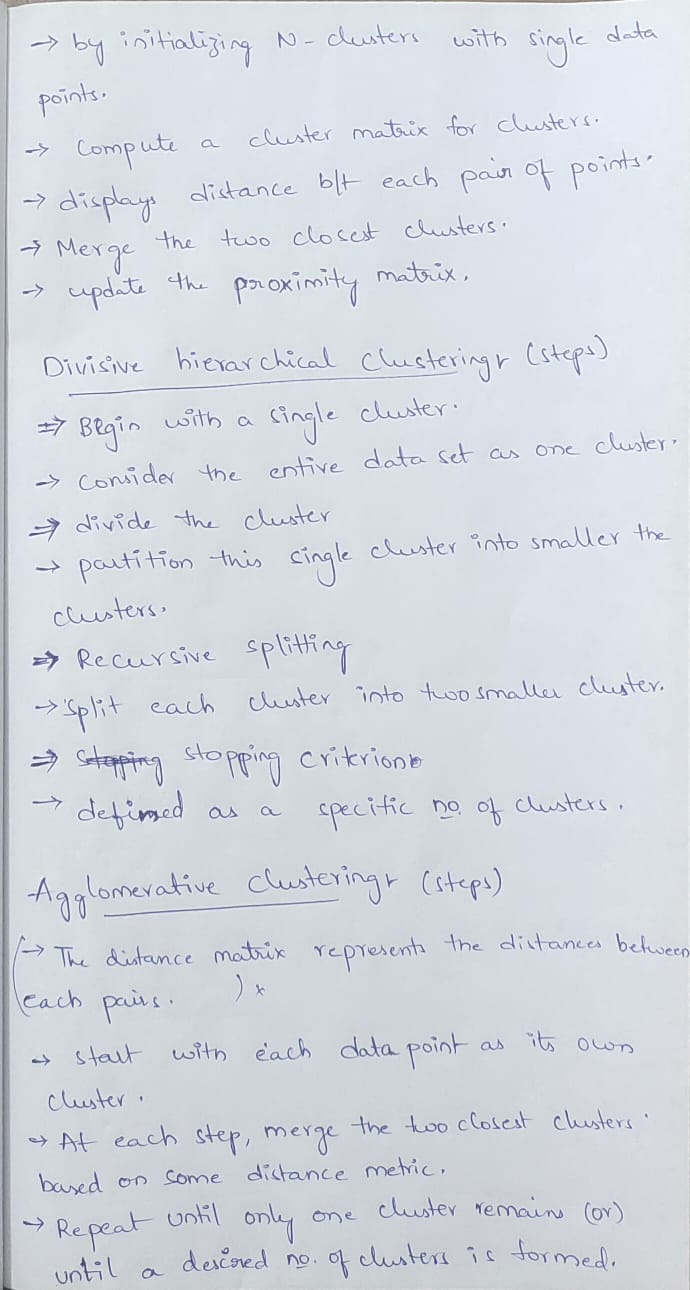 → by initializing N-clusters with single data
points.
→ Compute a cluster matrix for clusters.
→ displays distance b/t each pair of points.
→ Merge the two closest clusters.
→ update the proximity matrix.
Divisive hierarchical clustering (steps)
⇒ Begin with a single cluster.
→ Consider the entire data set as one cluster.
⇒ divide the cluster
→ partition this single cluster into smaller the
clusters.
⇒ Recursive splitting
→ split each cluster into two smaller cluster.
⇒ stopping critrion
→ defined as a specific no. of clusters.
Agglomerative clustering (steps)
(→ The distance matrix represents the distances between
each pairs. ) x
→ start with each data point as its own
cluster.
→ At each step, merge the two closest clusters
based on some distance metric.
→ Repeat until only one cluster remains (or)
until a desired no. of clusters is formed.